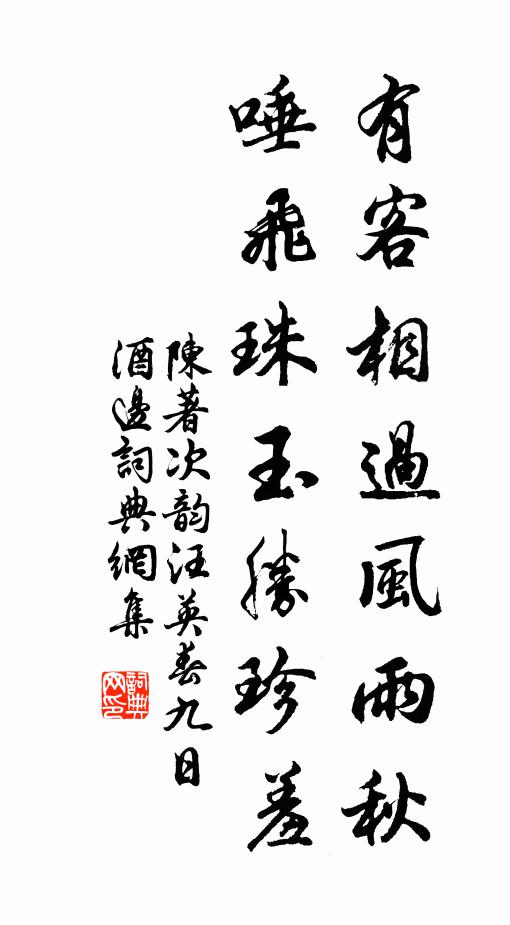 有客相過風雨秋
唾飛珠玉勝珍羞
陳著次韵汪英春九日
酒邊詞典網集
詞典网印